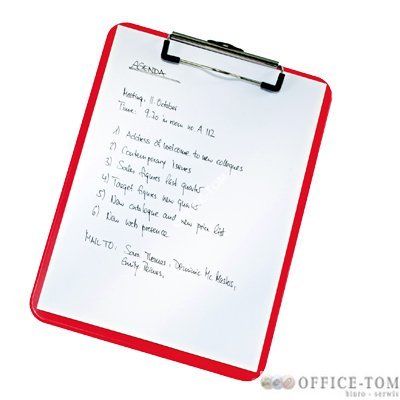 AGENDA
Meeting, 11. October
Time: 9:30 in room no A 112
1) Address of welcome to new collegues
2) Contemporary issues
3) Sales figures last quarter
4) Target figures new quarter
5) New catalogue and new price list
6) New web presence
MAIL TO: Sara Thomas, Dominic Mc
Emily
OFFICE-TOM
biuro - serwis